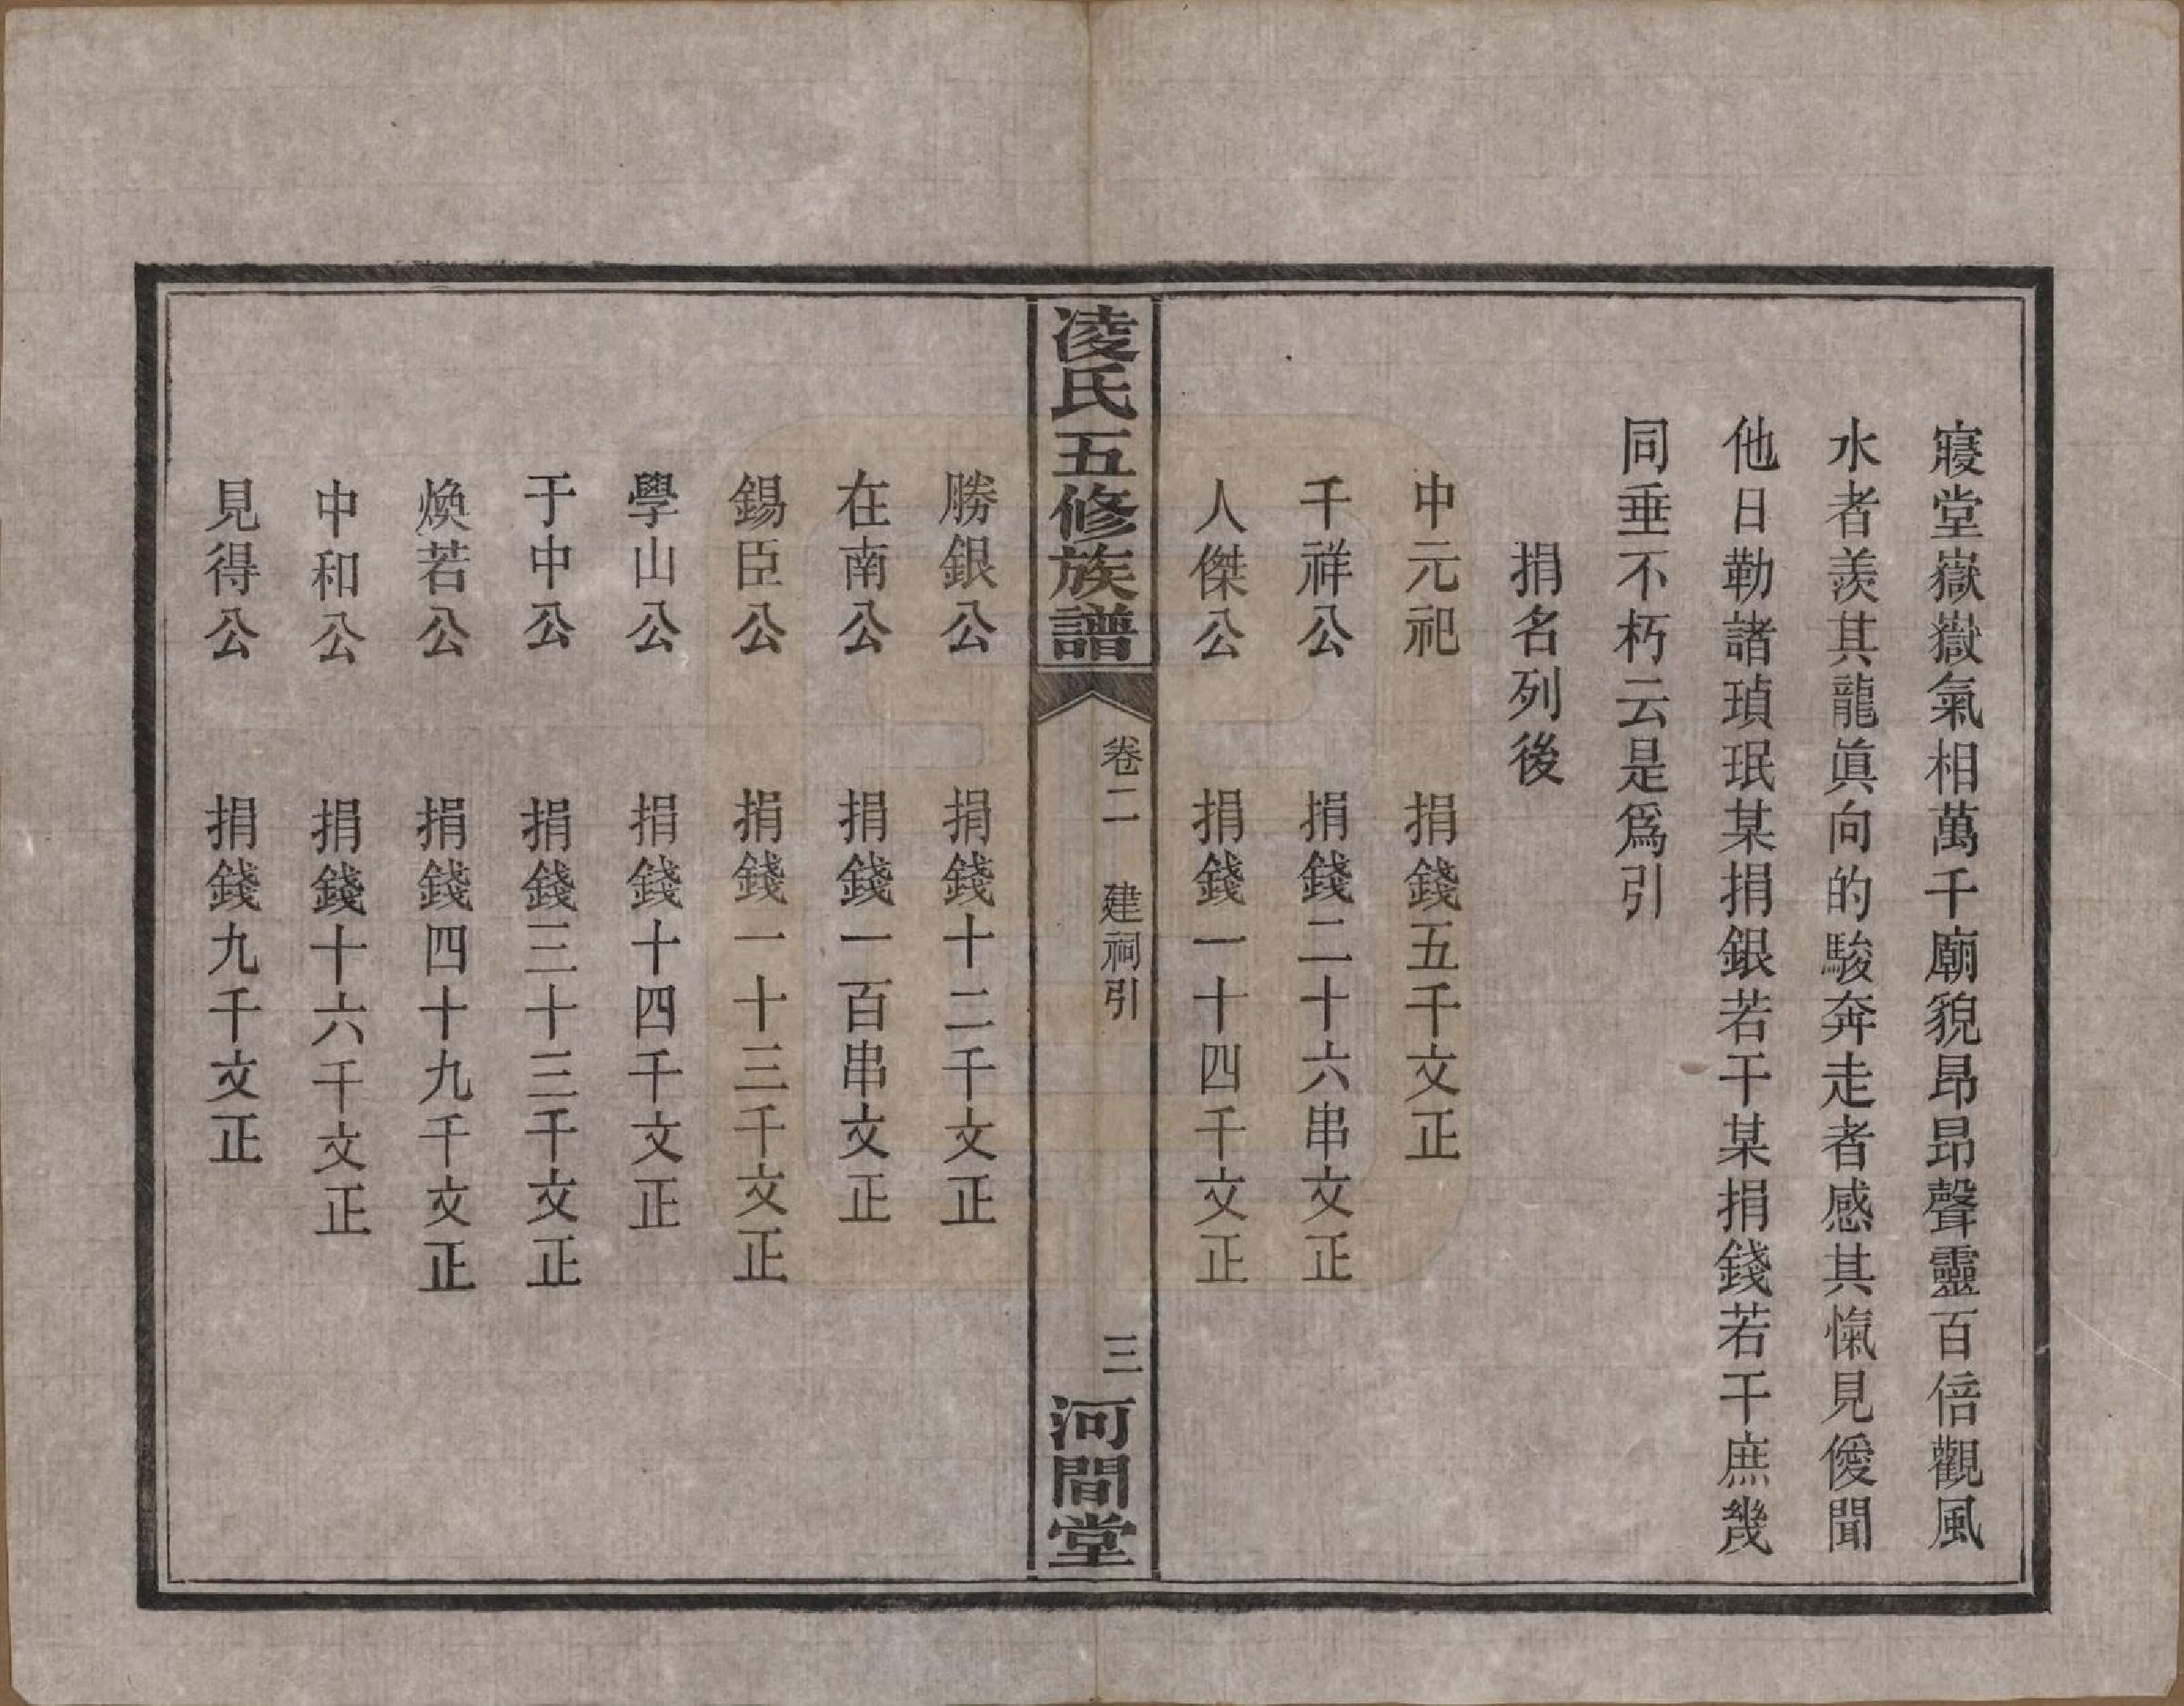 寢堂嶽嶽氣相萬千廟貌昂昂聲靈百倍觀風
水者羨其龍眞向的駿奔走者感其愾見僾聞
他日勒諸瑱珉某捐銀若干某捐錢若干庶幾
同垂不朽云是爲引
捐名列後
中元祀　捐錢五千文正
千祥公　捐錢二十六串文正
人傑公　捐錢一十四千文正
凌氏五修族譜　卷二　建祠引　三　河間堂
勝銀公　捐錢十二千文正
在南公　捐錢一百串文正
錫臣公　捐錢一十三千文正
學山公　捐錢十四千文正
于中公　捐錢三十三千文正
煥若公　捐錢四十九千文正
中和公　捐錢十六千文正
見得公　捐錢九千文正